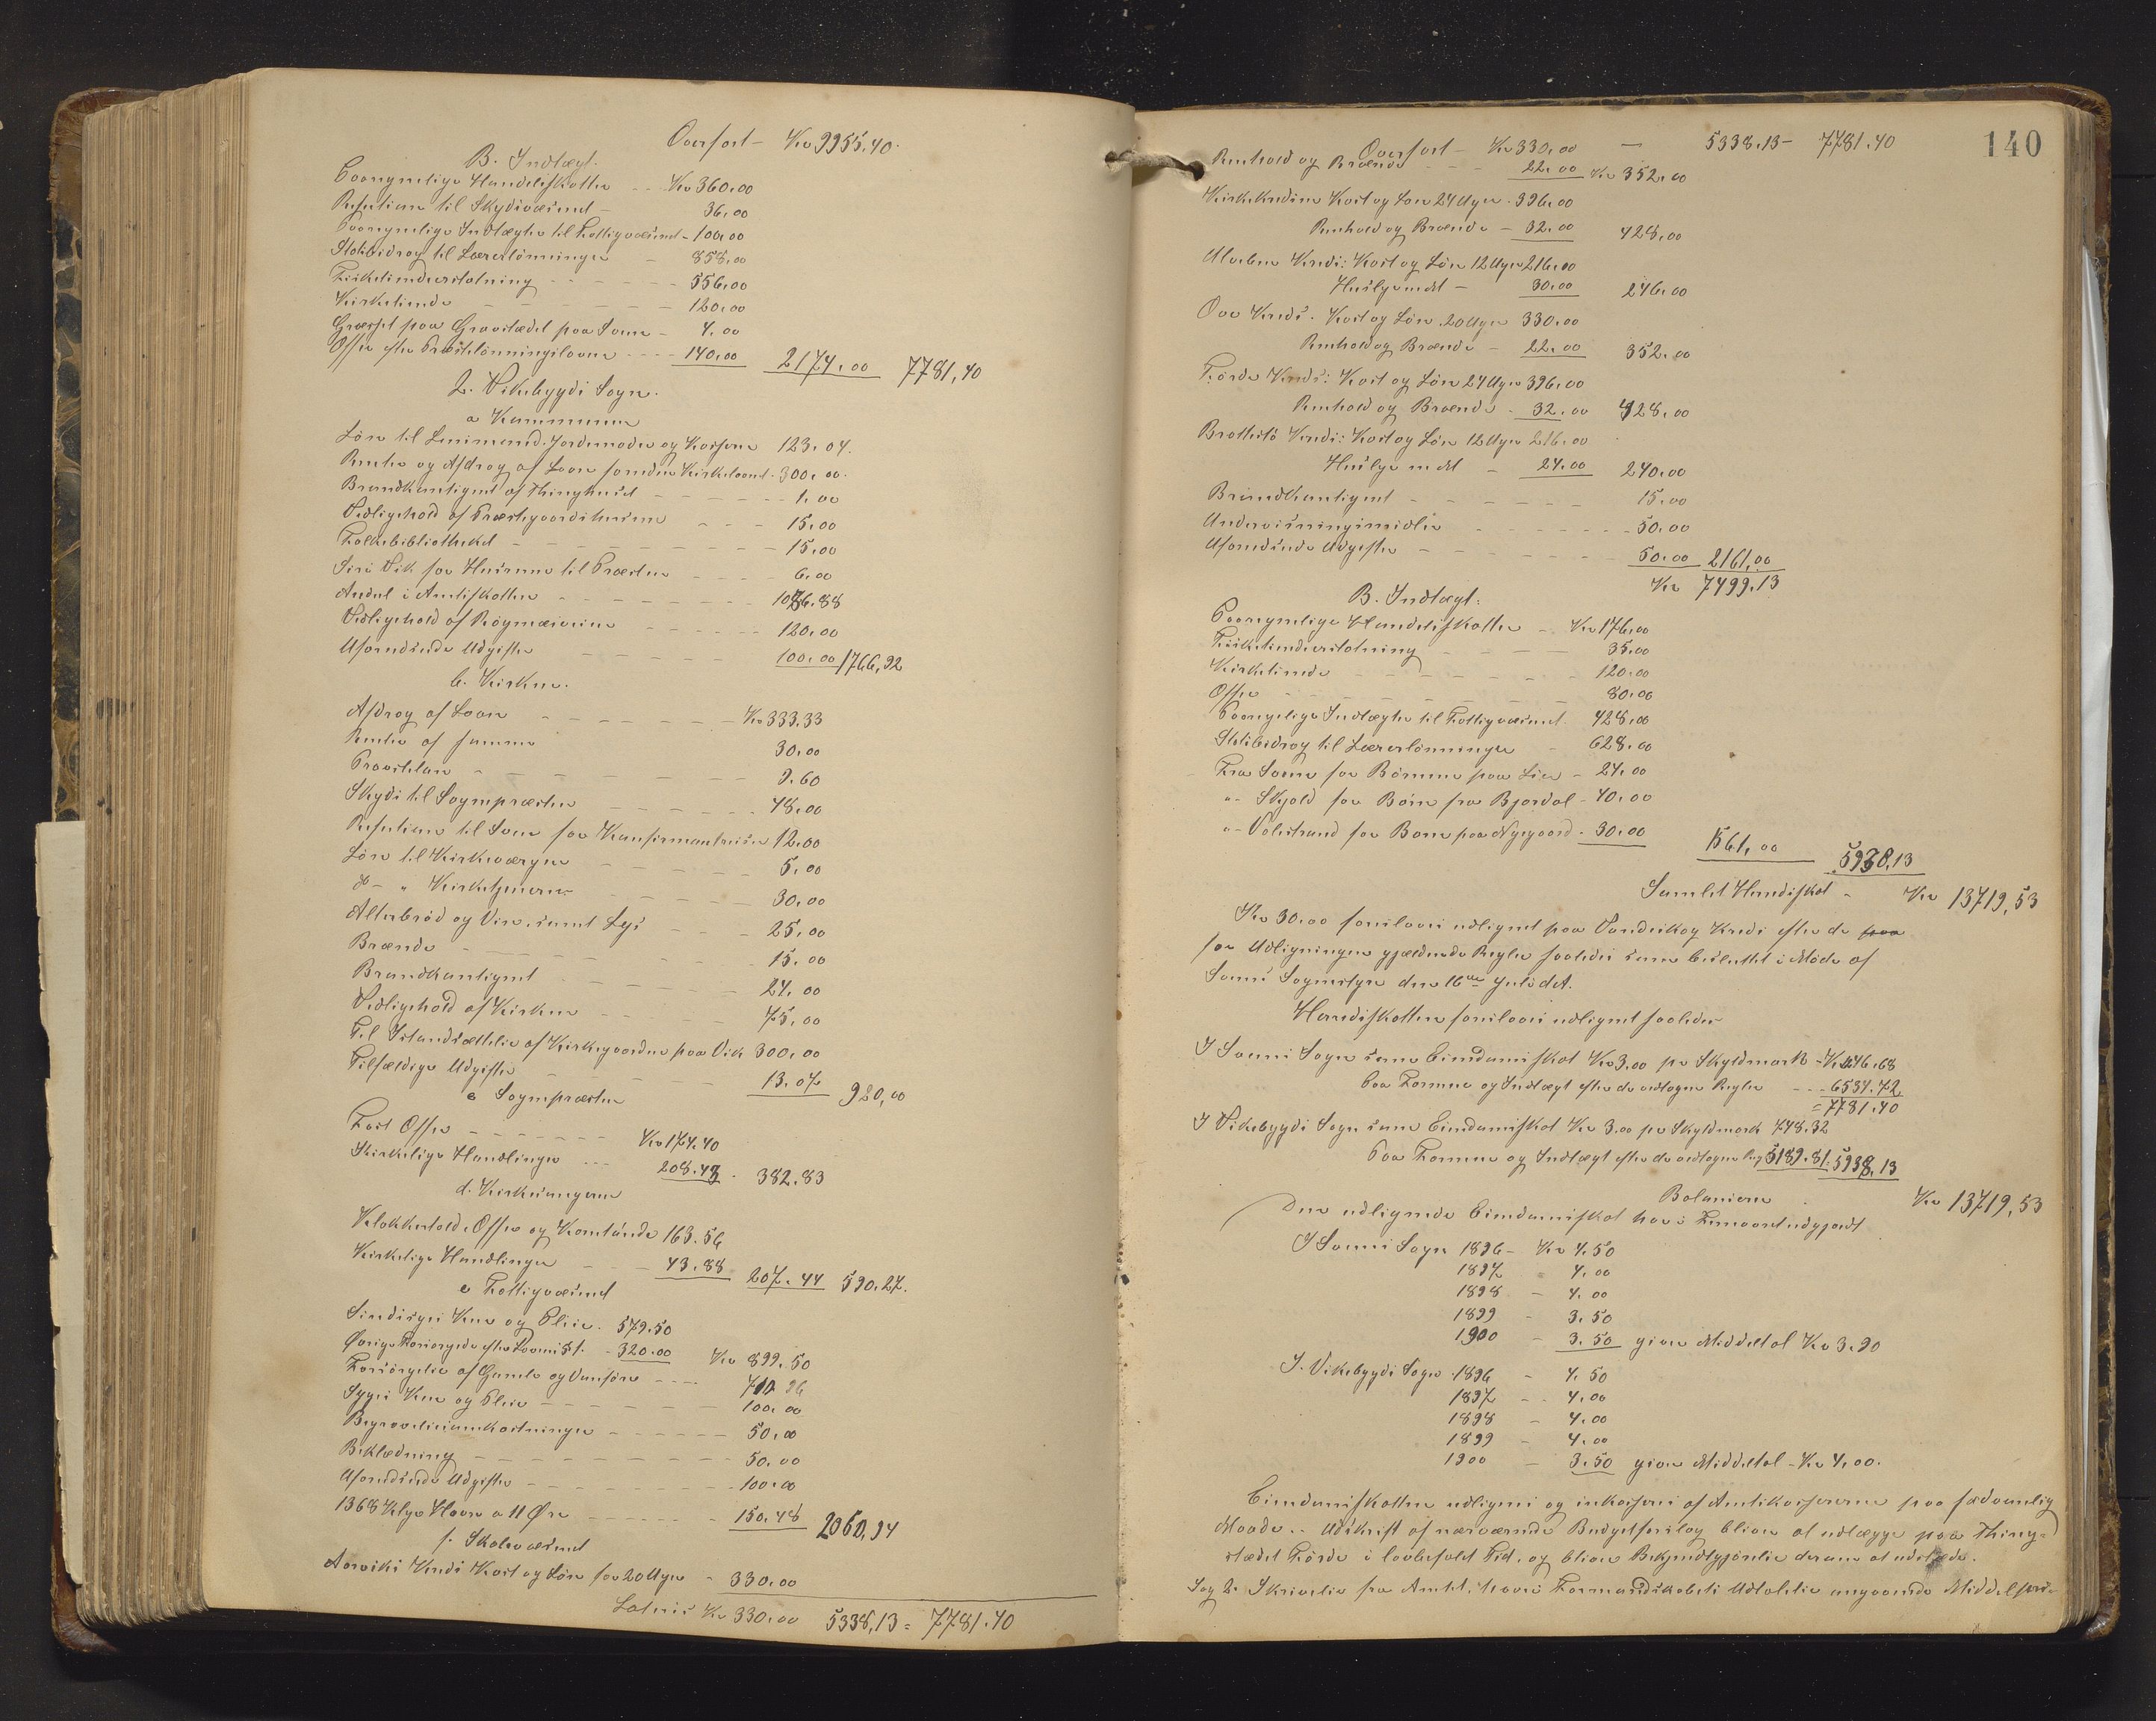 Overført – Kr 9955.40.
B. Indtægt.
Paaregnelige Handelsskatter – – Kr 360,00
Refusion til Skydsvæsenet – 36,00
Paaregnelige Indtægter til Fattigvæsenet – 100,00
Statsbidrag til Lærerlønninger – 858,00
Fisketiendeerstatning – – – – – 556,00
Kirketiende – – – – – 120,00
Græsset paa Gravstædet paa Søvde – 4.00
Offer efter Præstelønningsloven – – – 140,00 2174,00 7781,40
2. Vikebygds Sogn.
a Kommunen
Løn til Lensmand, Jordemoder og Kasserer 123.04.
Renter og Afdrag af Laan for den Kirkelaant. 300,00.
Brandkontigent af Thinghuset – – – – – 1.00
Vedligehold af Præstegaardshusene – – – 15.00
Folkebibliotheket – – – – – – – 15,00
Siri Vik for Husrum til Præsten – – – 6.00
Andel i Amtsskatten – – – – – – 1086.88
Vedligehold af – – – – – 120.00
Uforudseede Udgifter – – – – – 100.00 1766,92
b. Kirken.
Afdrag af Laan – – – – – – Kr 333,33
Renter af samme 30.00
– – – – – – – 9.60
Skyds til Sognepræsten – – – – – 48,00
Refusion til Søvde for Konfirmantreiser 12,00
Løn til Kirkeværgen – – – – – 5,00
do – " Kirketjeneren – – – – – 30,00
Alterbrød og Vin, samt Lys – – – 25,00
Brænde – – – – – – – 15,00
Brandkontigent – – – – – 24,00
Vedligehold af Kirken – – – – 75,00
Til Istandsættelse af Kirkegaarden paa Vik 300,00
Tilfældige Udgifter – – – – – 13.07 920,00
c Sognepræsten
Fast Offer – – – – – – Kr 174.40
Kirkelige Handlinger – – – 208.43. 382.83
d. Kirkesangeren
Klokkertold, Offer og Korntiende 163.56
Kirkelige Handlinger – – – 43.88 207.44 590.27.
e Fattigvæsenet
Sindssyges Kur og Pleie. 579.50
Øvrige Forsorgede efter Lovens §1. – 320.00 Kr 899.50
Forsørgelse af Gamle og Vanføre – – – 710 96
Syges Kur og Pleie – – – – – 100,00
Begravelsesomkostninger – – – – – 50.00
Beklædning – – – – – – – 50.00
Uforudseede Udgifter – – – – – – 100.00
1368 Kilo Havre a 11 Øre – – – – – 150.48 2060,94
f. Skolevæsenet
Kreds Kost og Løn for 20 Uger – 330.00
Lateris Kr 330,00 5338,13 = 7781.40
140
Overført – Kr 330,00 – 5338.13 – 7781.40
Renhold og Brænde – – 22.00 Kr 352.00
Kirkekredsen Kost og Løn 24 Uger. 396.00
Renhold og Brænde – 32.00 428,00
Kreds: Kost og Løn 12 Uger 216,00
Husleje m dl – 30,00 246,00
Kreds. Kost og Løn 20 Uger 330.00
Renhold og Brænde – 22.00 352.00
Førde Kreds: Kost og Løn 24 Uger 396,00
Renhold og Brænde – 32.00 428,00
Kreds: Kost og Løn 12 Uger 216.00
Husleje m dl – 24.00 240.00
Brandkontigent – – – – – 15.00
Undervisningsmidler – – – – 50.00
Uforudseede Udgifter – – – – – 50.00 2161,00
Kr 7499.13
B. Indtægt:
Paaregnelige Handelsskatter – Kr 176,00
Fisketiendeerstatning – – – 35,00
Kirketiende – – – – – – 120.00
Offer – – – – – – – 80.00
Paaregnelige Indtægter til Fattigvæsenet. 428,00
Statsbidrag til Lærerlønninger – 628,00
Fra Søvde for Børnene paa Lie – 24.00
" – Skjold for Børn fra Bjordal – 40.00
" – Valestrand for Børn paa Nygaard – 30.00 1561,00 5938.13
Samlet Herredsskat – Kr 13719,53
Kr 30.00 foreslaaes udlignet paa Vandvikog Kreds efter de
for Udligningen gjældende Regler saaledes som besluttet i Møde af
Søvde Sognestyre den 16de Juli d.A.
Herredsskatten foreslaaes udlignet saaledes
I Søvde Sogn som Eiendomsskat Kr 3,00 pr Skyldmark – Kr 1246.68
Paa Formue og Indtægt efter de vedtagne Regler – – – 6534.72
= 7781.40
I Vikebygds Sogn som Eiendomsskat Kr 3.00 pr Skyldmark 748.32
Paa Formue og Indtægt efter de vedtagne Reg 5189.81 = 5938,13
Balancerer Kr 13719,53
Den udlignede Eiendomsskat har i Femaaret udgjort
I Søvde Sogn 1896 – Kr 4.50
1897 – 4.00
1898 – 4.00
1899 – 3.50
1900 – 3.50 giver Middeltal Kr 3.90
I. Vikebygds Sogn 1896 – 4.50
1897 – – 4.00
1898 – 4.00
1899 – 4.00
1900 – 3.50 giver Middeltal – Kr 4,00.
Eiendomsskatten udlignes og inkasseres af Amtskassereren paa sædvanlig
Maade. – Udskrift af nærværende Budgetforslag bliver at udlægge paa Thing-
stædet Førde i lovbefalet Tid, og bliver Bekjendtgjørelse derom at udstæde.
Sag 2. Skrivelse fra Amtet, hvori Formandskabets Udtalelse angaaende